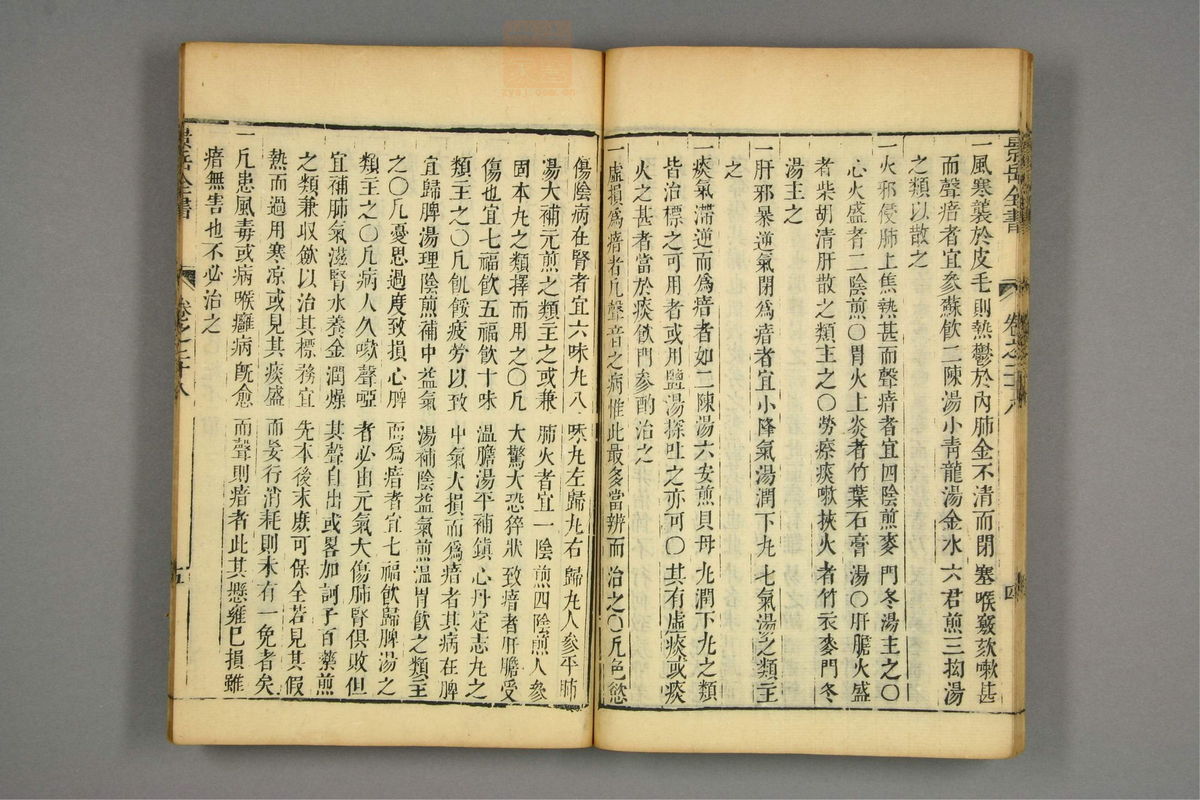 景岳全書
卷之二十八
四
一風寒襲於皮毛則熱鬱於內肺金不清而閉塞喉竅欬嗽甚
而聲瘖者宜參蘇飲二陳湯小青龍湯金水六君煎三拗湯
之類以散之
一火邪侵肺上焦熱甚而聲瘖者宜四陰煎麥門冬湯主之○
心火盛者二陰煎○胃火上炎者竹葉石膏湯○肝膽火盛
者柴胡清肝散之類主之○勞瘵痰嗽挾火者竹衣麥門冬
湯主之
一肝邪暴逆氣閉爲瘖者宜小降氣湯潤下丸七氣湯之類主
之
一痰氣滯逆而爲瘖者如二陳湯六安煎貝母丸潤下丸之類
皆治標之可用者或用鹽湯探吐之亦可○其有虛痰或痰
火之甚者當於痰飲門參酌治之
一虛損爲瘖者凡聲音之病惟此最多當辨而治之○凡色慾
傷陰病在腎者宜六味丸八味丸左歸丸右歸丸人參平肺
湯大補元煎之類主之或兼肺火者宜一陰煎四陰煎人參
固本丸之類擇而用之○凡大驚大恐猝狀致瘖者肝膽受
傷也宜七福飲五福飲十味溫膽湯平補鎮心丹定志丸之
類主之○凡飢餒疲勞以致中氣大損而爲瘖者其病在脾
宜歸脾湯理陰煎補中益氣湯補陰益氣煎溫胃飲之類主
之○凡憂思過度致損心脾而爲瘖者宜七福飲歸脾湯之
類主之○凡病人久嗽聲啞者必由元氣大傷肺腎俱敗但
宜補肺氣滋腎水養金潤燥其聲自出或畧加訶子百藥煎
之類兼収歛以治其標務宜先本後末庶可保全若見其假
熱而過用寒凉或見其痰盛而妄行消耗則未有一免者矣
一凡患風毒或病喉癰病旣愈而聲則瘖者此其懸雍已損雖
瘖無害也不必治之
景岳全書
卷之二十八
五